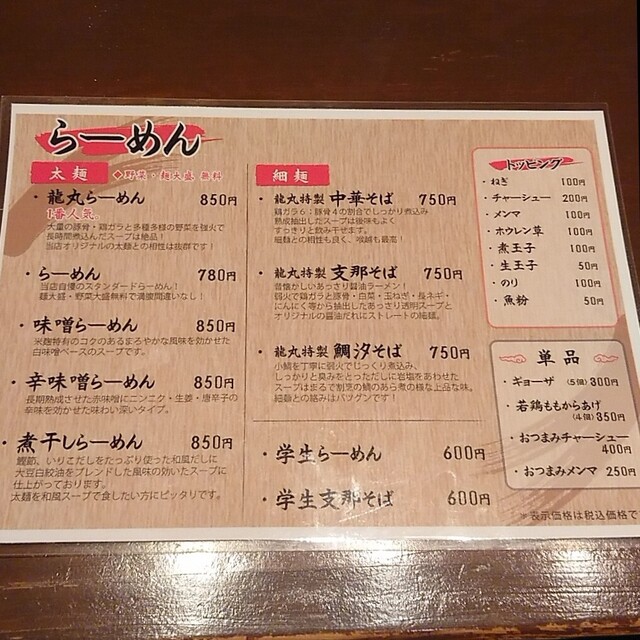 らーめん
太麺 ◆野菜・麺大盛 無料
・龍丸らーめん 850円
1番人気。
大量の豚骨・鶏ガラと多種多様の野菜を強火で
長時間煮込んだスープは絶品!
当店オリジナルの太麺との相性は抜群です!
・らーめん 780円
当店自慢のスタンダードらーめん!
麺大盛・野菜大盛無料で満腹間違いなし!
・味噌らーめん 850円
米麹特有のコクのあるまろやかな風味を効かせた
白味噌ベースのスープです。
・辛味噌らーめん 850円
長期熟成させた赤味噌にニンニク・生姜・唐辛子の
辛味を効かせた味わい深いタイプ。
・煮干しらーめん 850円
鰹節、いりこだしをたっぷり使った和風だしに
大豆白絞油をブレンドした風味の効いたスープに
仕上がっております。
太麺を和風スープで食したい方にピッタリです。
細麺
・龍丸特製 中華そば 750円
鶏ガラ6:豚骨4の割合でしっかり煮込み
熟成抽出したスープは後味もよく
すっきりと飲み干せます。
細麺との相性も良く、喉越も最高!
・龍丸特製 支那そば 750円
昔懐かしいあっさり醤油ラーメン!
弱火で鶏ガラと豚骨・白菜・玉ねぎ・長ネギ・
にんにく等から抽出したあっさり透明スープと
オリジナルの醤油だれにストレートの細麺。
・龍丸特製 鯛汐そば 750円
小鯛を丁寧に弱火でじっくり煮込み、
しっかりと臭みをとっただしに岩塩をあわせた
スープはまるで割烹の鯛のあら煮の様な上品な味。
細麺との絡みはバツグンです!
・学生らーめん 600円
・学生支那そば 600円
トッピング
・ねぎ 100円
・チャーシュー 200円
・メンマ 100円
・ホウレン草 100円
・煮玉子 100円
・生玉子 50円
・のり 100円
・魚粉 50円
単品
・ギョーザ (5個)300円
・若鶏ももからあげ
(4個)350円
・おつまみチャーシュー
400円
・おつまみメンマ 250円
※表示価格は税込価格で